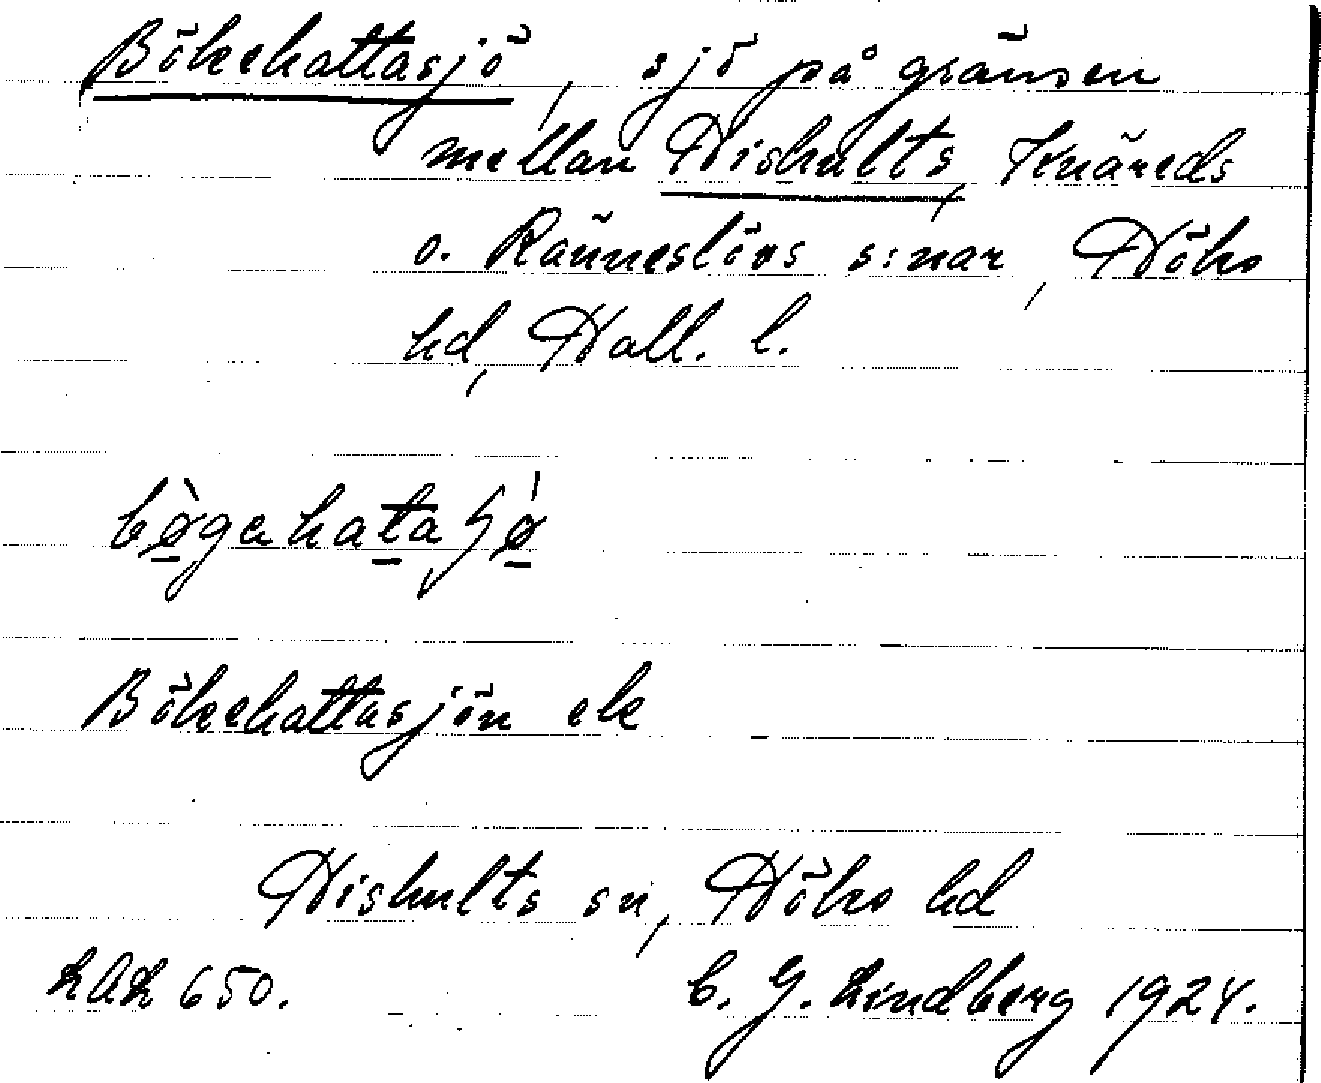 Bökehattasjö, sjö på gränsen
mellan Hishults, Knäreds
o. Ränneslövs s:nar, Höks
hd, Hall. l.
bøgehata
Bökehattasjön ek
Hishults sn, Höks hd
LAL 650. C. G. Lindberg 1924.